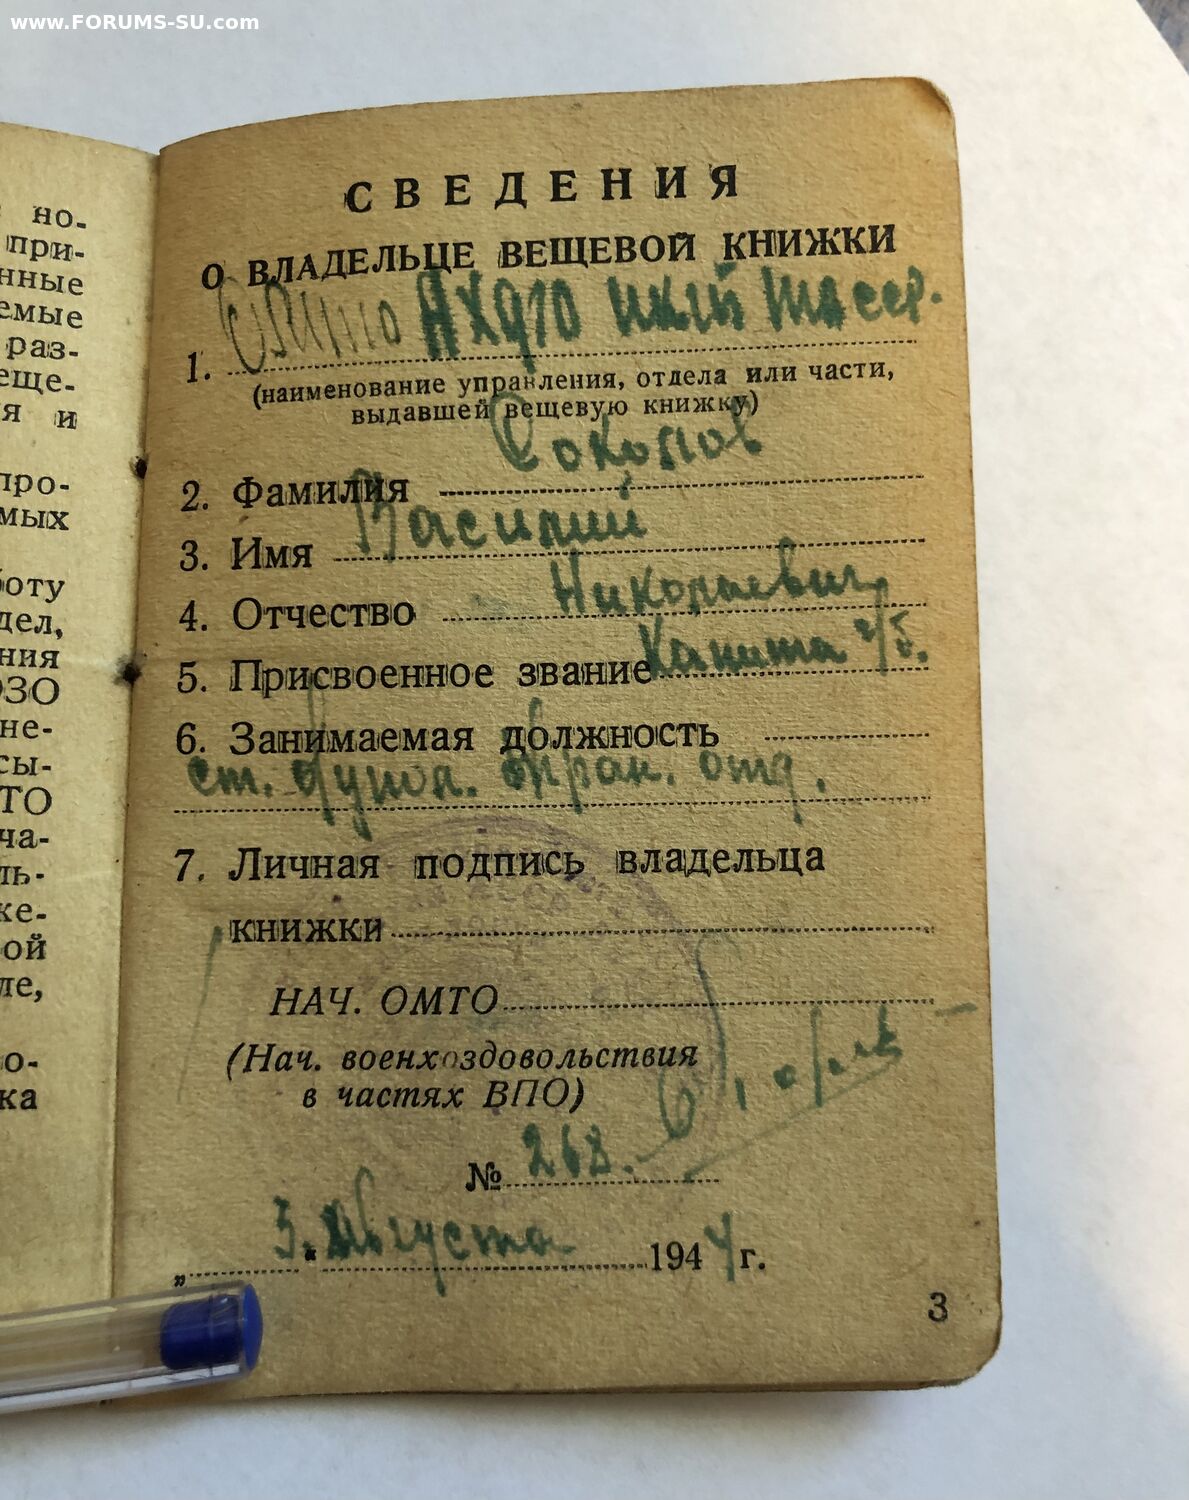 www.FORUMS-SU.com
но-
при-
нные
емые
раз-
еще-
я и
про-
мых
боту
дел,
ния
ОЗО
не-
сы-
ТО
ча-
ль-
же-
ой
ле,
о-
ка
СВЕДЕНИЯ
О ВЛАДЕЛЬЦЕ ВЕЩЕВОЙ КНИЖКИ
1. АХФО НКГБ ТАССР.
(наименование управления, отдела или части,
выдавшей вещевую книжку)
2. Фамилия Соколов
3. Имя Василий
4. Отчество Николаевич
5. Присвоенное звание Капитан г/б.
6. Занимаемая должность
ст. отд.
7. Личная подпись владельца
книжки
НАЧ. ОМТО
(Нач. военхоздовольствия
в частях ВПО)
№ 268.
„ 3. " Августа 1944 г.
3